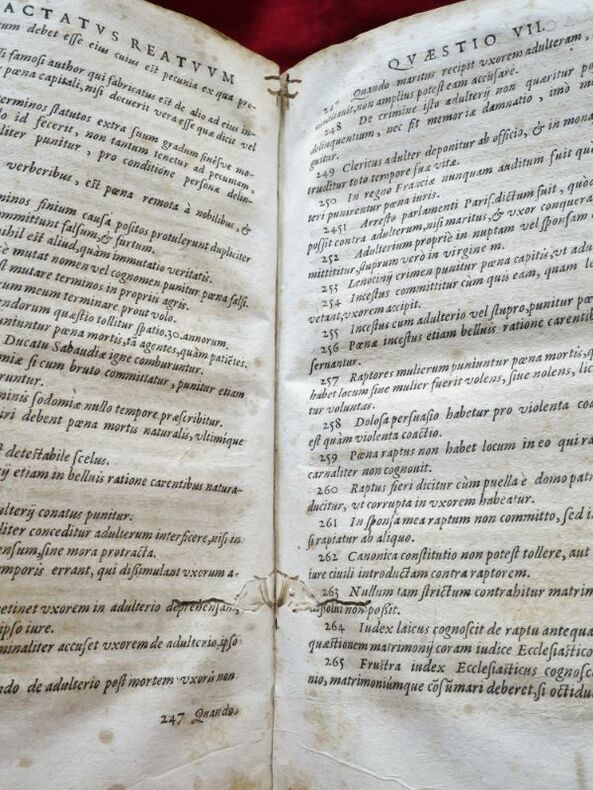 ACTATVS REATVVM
cum debet esse eius cuius est pecunia ex qua pro-
li famosi author qui fabricatus est de alio ad eius in-
pœna capitali, nisi docuerit vera esse quæ dicit vel
erminos statutos extra suum gradum sinéve mo-
lo id fecerit, non tantum tenetur ad pecuniam,
liter punitur, pro conditione personæ delin-
verberibus, est pœna remota à nobilibus, &
minos finium causa positos protulerunt dupliciter
ommittunt falsum, & furtum.
nihil est aliud, quàm immutatio veritatis.
è mutat nomen vel cognomen punitur pœna falsi.
st mutare terminos in propriis agris.
um meum terminare prout volo.
endorum quæstio tollitur spatio. 30. annorum.
uniuntur pœna mortis, tã agentes, quàm patiẽtes.
Ducatu Sabaudiæ igne comburuntur.
miæ si cum bruto committatur, punitur etiam
runtur.
minis sodomiæ nullo tempore præscribitur.
iri debent pœna mortis naturalis, vltimique
t detestabile scelus.
ij etiam in belluis ratione carentibus natura-
ulterij conatus punitur.
liter conceditur adulterum interficere, nisi in
ensum, sine mora protracta.
emporis errant, qui dissimulant vxorum a-
etinet vxorem in adulterio deprehensam,
ipso iure.
minaliter accuset vxorem de adulterio, ipso
ndo de adulterio post mortem vxoris non
247 Quando
QVÆSTIO VII.
247 Quando maritus recipit vxorem adulteram,
non amplius potest eam accusare.
248 De crimine isto adulterij non quæritur po
delinquentium, nec fit memoriæ damnatio, imo m
guitur.
249 Clericus adulter deponitur ab officio, & in mona
truditur toto tempore suæ vitæ.
250 In regno Franciæ nunquam auditum fuit qu
teri punirentur pœna iuris.
2451 Arresto parlamenti Paris. dictum fuit, quòd
possit contra adulterum, nisi maritus, & vxor conquera
252 Adulterium propriè in nuptam vel sponsam
mittitur, stuprum verò in virgine m
253 Lenocinij crimen punitur pœna capitis, vt adu
254 Incestus committitur cum quis eam, quam le
vetant, vxorem accipit.
255 Incestus cum adulterio vel stupro, punitur pœ
256 Pœnæ incestus etiam belluis ratione carentib
seruantur.
257 Raptores mulierum puniuntur pœna mortis, q
habet locum siue mulier fuerit volens, siue nolens, lic
tur voluntas.
258 Dolosa persuasio habetur pro violenta coa
est quàm violenta coactio.
259 Pœna raptus non habet locum in eo qui ra
carnaliter non cognouit.
260 Raptus fieri dicitur cùm puella è domo patr
ducitur, vt corrupta in vxorem habeatur.
261 In sponsa mea raptum non committo, sed i
si rapiatur ab aliquo.
262 Canonica constitutio non potest tollere, aut
iure ciuili introductam contra raptorem.
263 Nullum tam strictum contrahitur matrim
dissolui non possit.
264 Iudex laicus cognoscit de raptu antequa
quæstionem matrimonij coram iudice Ecclesiastico
265 Frustra iudex Ecclesiasticus cognosc
nio, matrimoniúmque cõsumari deberet, si occidu